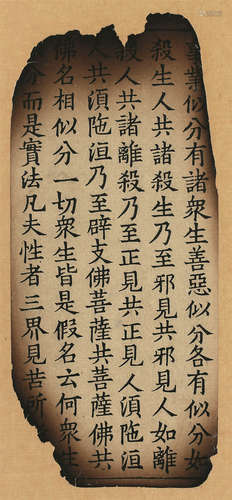 業似分有諸衆生善惡似分各有似分如
殺生人共諸殺生乃至邪見共邪見人如離
殺人共諸離殺乃至正見共正見人湏陁洹
人共湏陁洹乃至辟支佛菩薩共菩薩佛共
佛名相似分一切衆生皆是假名云何衆生
分而是實法凡夫性者三界見苦所